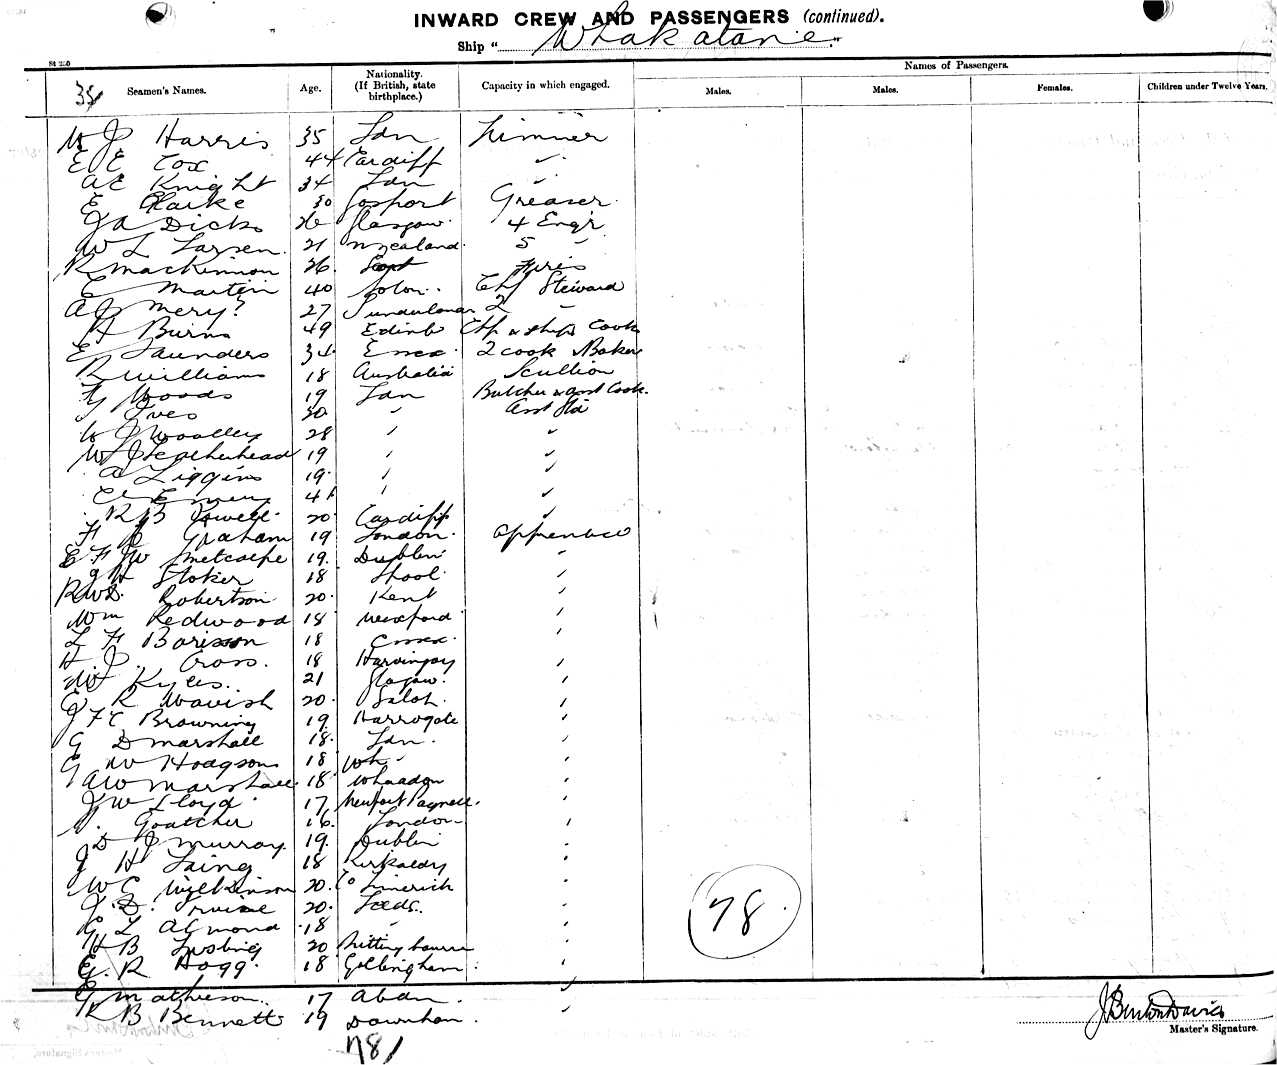 INWARD CREW AND PASSENGERS (continued).
Ship "Whakatane"
St 240
Seamen's Names. Age. Nationality. (If British, state birthplace.) Capacity in which engaged. Names of Passengers.
Males. Males. Females. Children under Twelve Years.
W J Harris 35 Ldn Trimmer
E E Cox 44 Cardiff ✓
A E Knight 34 Ldn ✓
E Clarke 30 Gosport Greaser
J A Dicks 26 Glasgow 4 Engr
W L Larsen 21 N Zealand 5 "
R Mackinnon 26
E Martin 40 Chf Steward
A J Mery? 27 2 "
H Burns 49 Edinb Chf & Ships Cook
E Saunders 34 Essex 2 Cook & Baker
R Williams 18 Australia Scullion
Woods 19 Ldn Butcher & asst Cook
Ives 30 " Asst Std
W J Woolley 28 " "
W J Leatherhead 19 " "
A Liggins 19 " "
" "
R B Powell 20 Cardiff "
Graham 19 London Apprentice
E F W Metcalfe 19 Dublin "
Stoker 18 "
R W D Robertson 20 Kent "
Wm Redwood 18 Wexford "
L F 18 Essex "
H J Cross 18 Harringay "
Kyles 21 Glasgow "
E R Mavish 20 "
J F C Browning 19 Harrogate "
G D Marshall 18 Ldn "
G W Hodgson 18 "
A W Marshall 18 Whaddon "
J W Lloyd 17 Newport Pagnell "
Goatcher 16 London "
D J Murray 19 Dublin "
J H Laing 18 Kirkcaldy "
W C Wilkinson 20 Co Limerick "
J D Irvine 20 Leeds "
G L Almond 18 " "
H B 20 Sittingbourne "
G. R Hogg 18 Gillingham "
G Matheson 17 "
R B Bennett 19 Downham "
78
78/
J Benton Davies
Master's Signature.